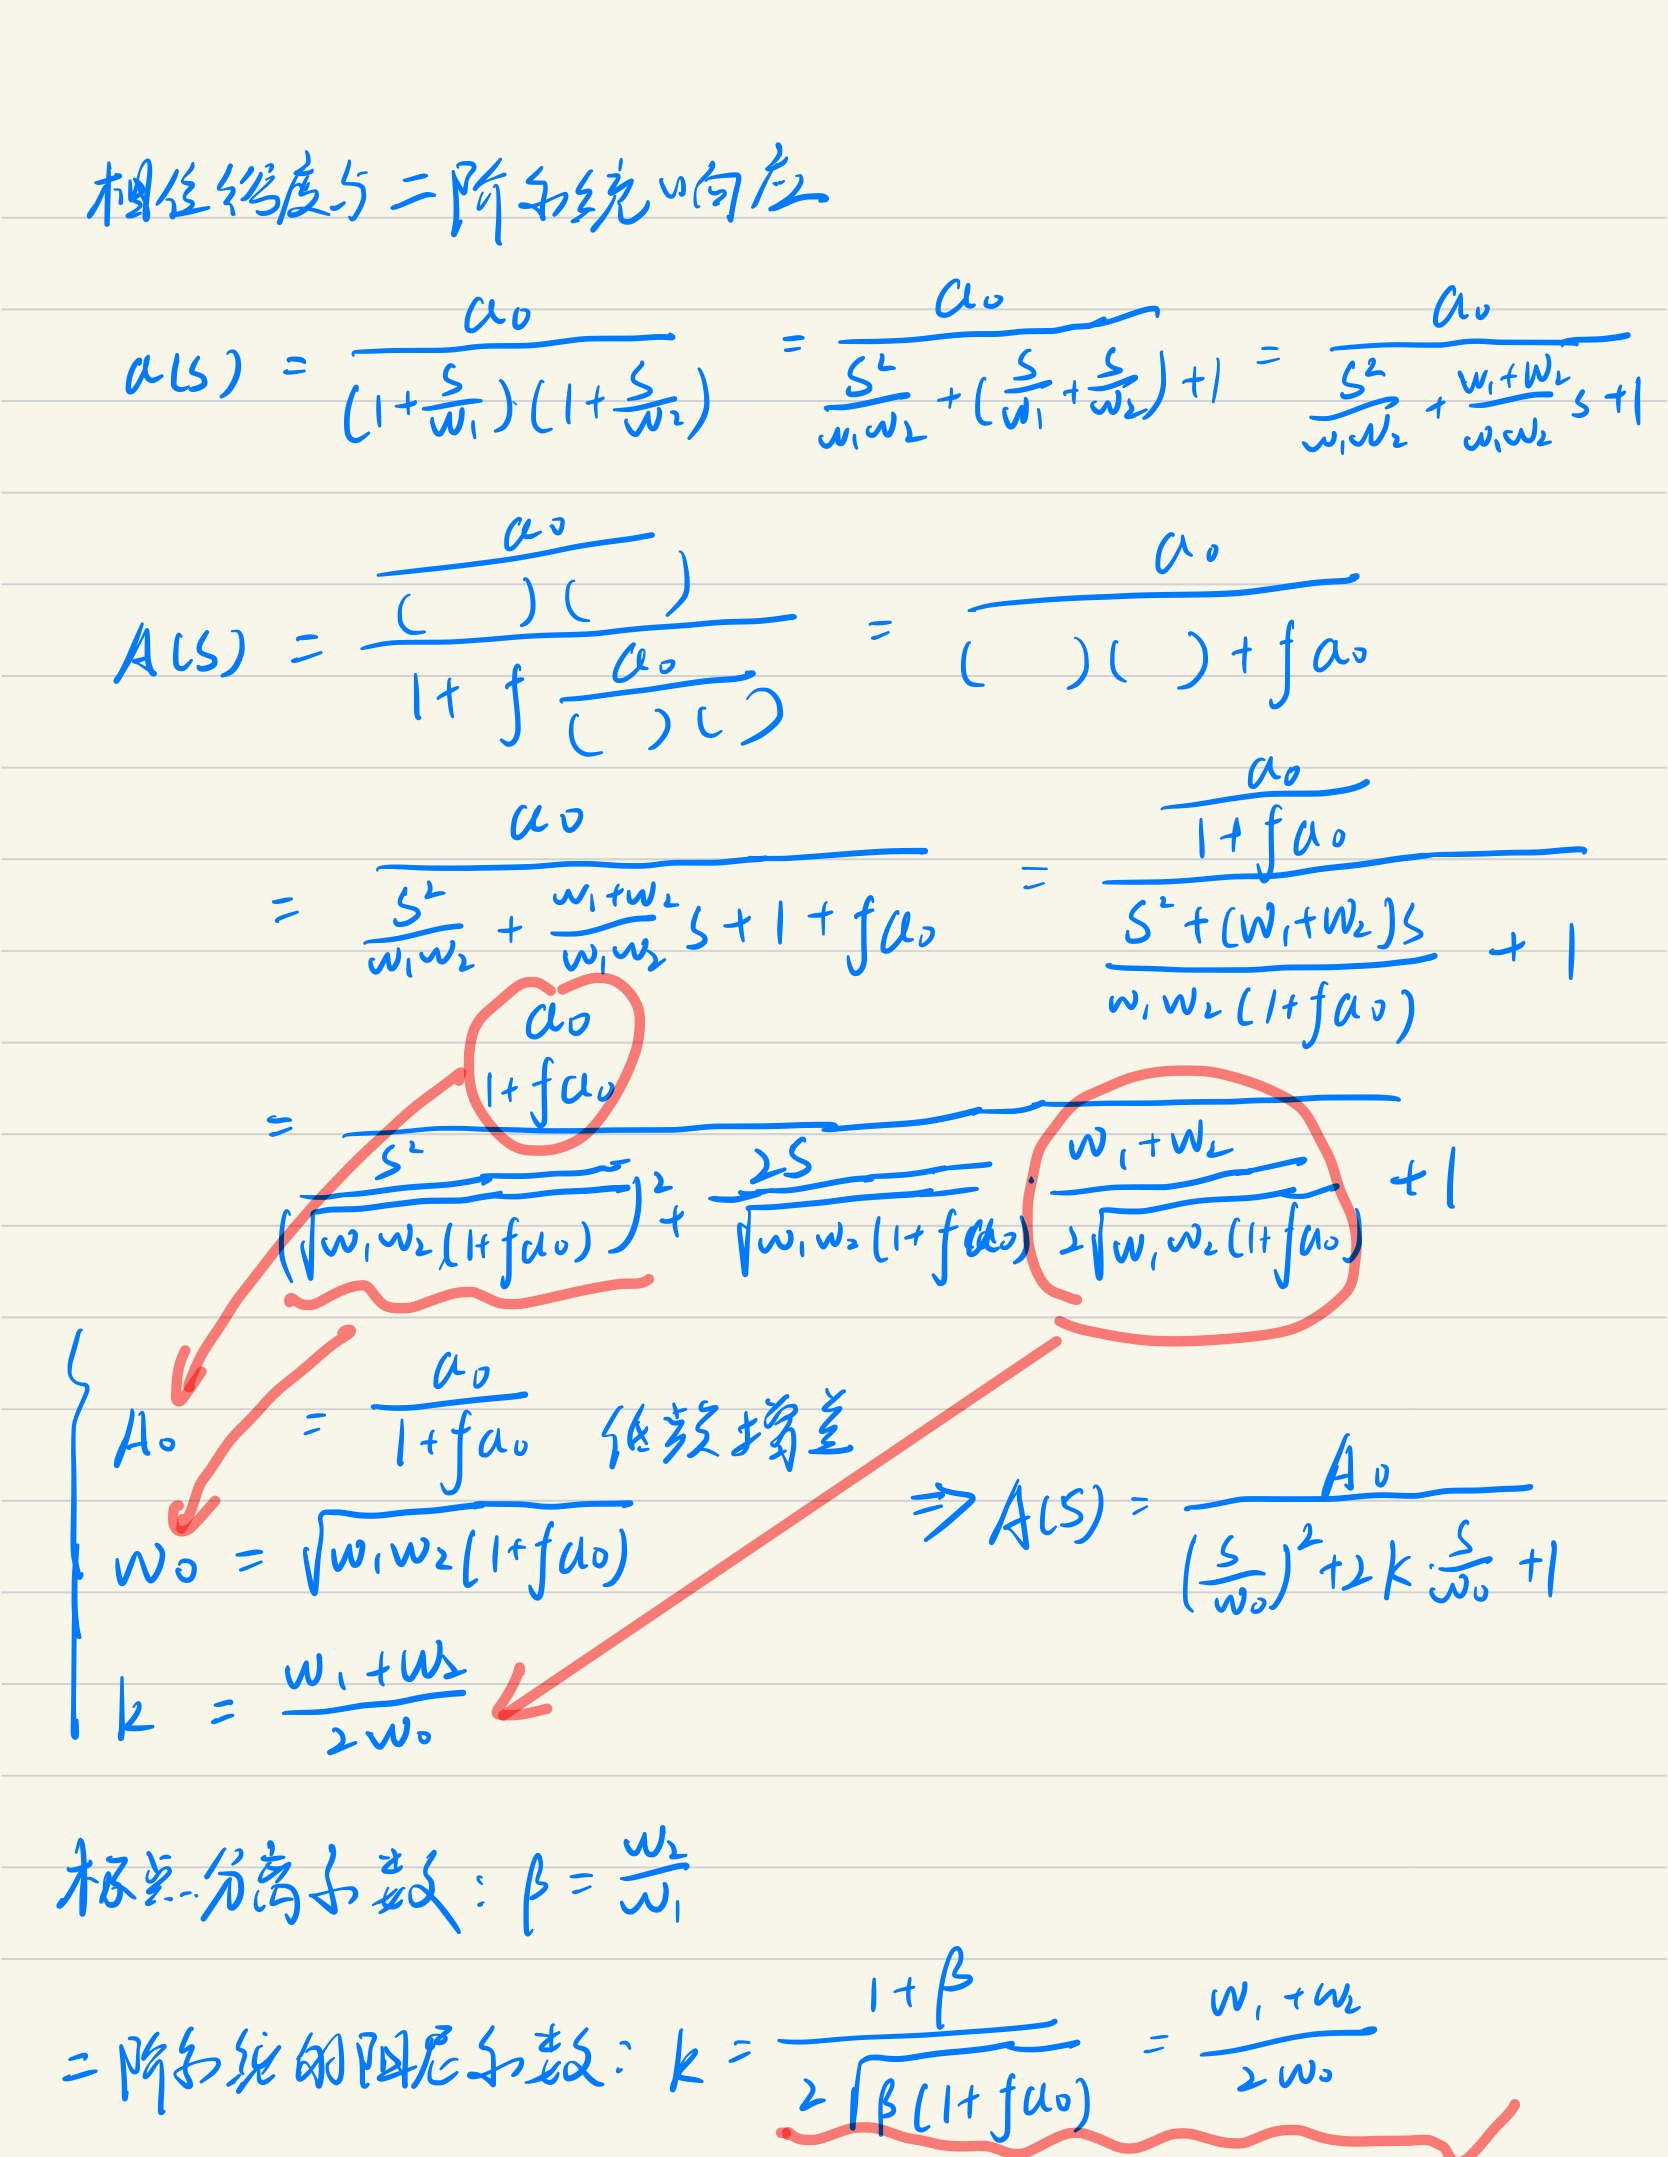 相位裕度与二阶系统响应
a(s) = a₀ / ((1+s/w₁)·(1+s/w₂)) = a₀ / (s²/(w₁w₂) + (s/w₁+s/w₂)+1) = a₀ / (s²/(w₁w₂) + (w₁+w₂)/(w₁w₂) s+1)
A(s) = (a₀ / ( )( )) / (1+ f a₀/( )( )) = a₀ / (( )( )+fa₀)
= a₀ / (s²/(w₁w₂) + (w₁+w₂)/(w₁w₂) s+1+fa₀) = (a₀/(1+fa₀)) / ((s²+(w₁+w₂)s)/(w₁w₂(1+fa₀)) + 1)
= (a₀ / 1+fa₀) / (s²/(√(w₁w₂(1+fa₀)))² + 2s/√(w₁w₂(1+fa₀)) · (w₁+w₂)/(2√(w₁w₂(1+fa₀))) +1)
A₀ = a₀/(1+fa₀) 低频增益
w₀ = √(w₁w₂(1+fa₀))
⇒ A(s) = A₀ / ((s/w₀)²+2k·s/w₀+1)
k = (w₁+w₂)/(2w₀)
极点分离系数: β = w₂/w₁
二阶系统的阻尼系数: k = (1+β)/(2√(β(1+fa₀))) = (w₁+w₂)/(2w₀)